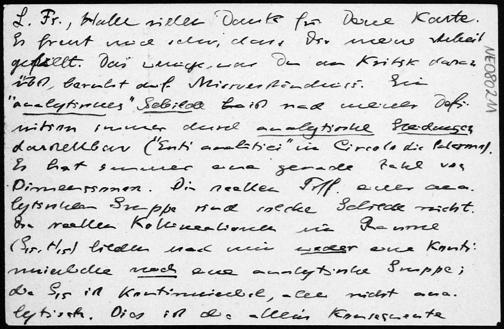 L. Fr., Habe vielen Dank für Deine Karte.
Es freut mich sehr, dass Dir meine Arbeit
gefällt. Das wenige, was Du an Kritik daran
übst, beruht auf Missverständnis. Ein
"analytisches" Gebilde heißt nach meiner Defi-
nition immer durch analytische Gleichungen
darstellbar ("Enti analitici" in Circolo di Palermo).
Es hat immer eine gerade Zahl von
Dimensionen. Die reellen Trff. einer ana-
lytischen Gruppe sind solche Gebilde nicht.
Die reellen Kollineationen im Raume
(G15, H15) bilden nach mir weder eine Konti-
nuierliche noch eine analytische Gruppe;
die G15 ist Kontinuierlich, aber nicht ana-
lytisch. Dies ist die allein Konsequente
NE080211